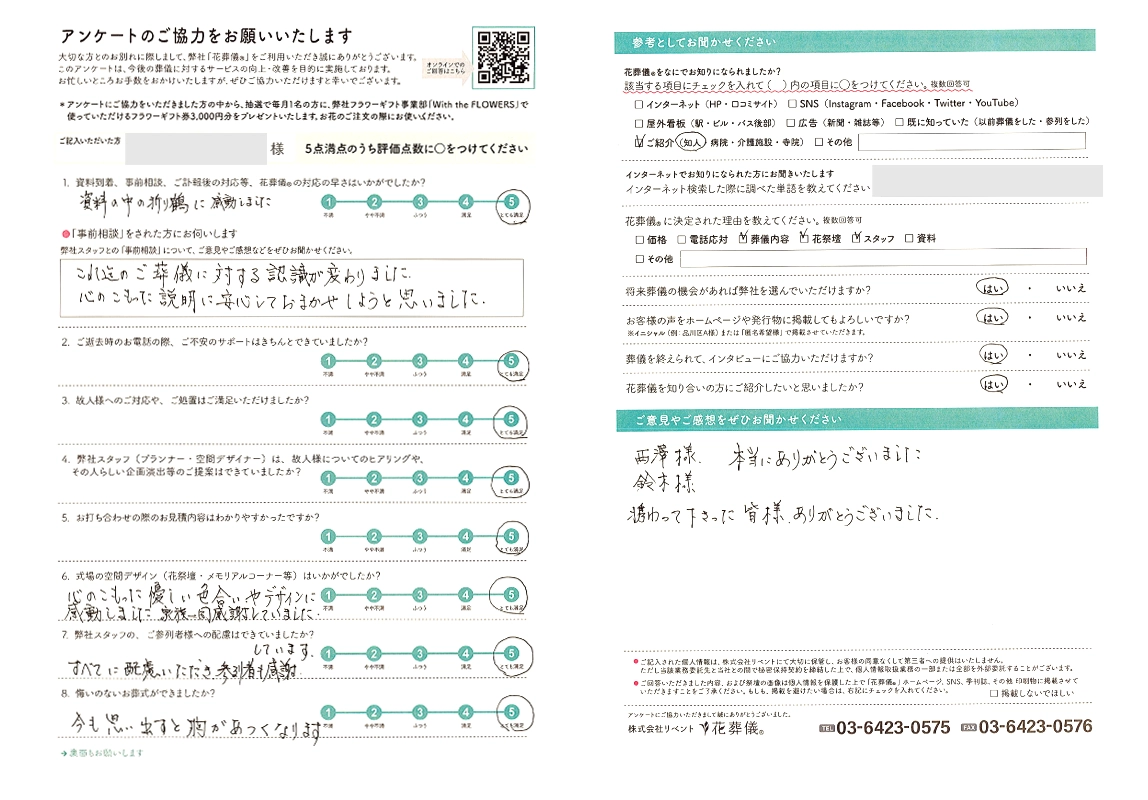 アンケートのご協力をお願いいたします
大切な方とのお別れに際しまして、弊社「花葬儀®」をご利用いただき誠にありがとうございます。
このアンケートは、今後の葬儀に対するサービスの向上・改善を目的に実施しております。
お忙しいところお手数をおかけいたしますが、ぜひご協力いただけますと幸いでございます。
オンラインでの
ご回答はこちら
*アンケートにご協力をいただきました方の中から、抽選で毎月1名の方に、弊社フラワーギフト事業部「With the FLOWERS」で
使っていただけるフラワーギフト券3,000円分をプレゼントいたします。お花のご注文の際にお使いください。
ご記入いただいた方 様 5点満点のうち評価点数に○をつけてください
1. 資料到着、事前相談、ご訃報後の対応等、花葬儀®の対応の早さはいかがでしたか?
資料の中の折り鶴に感動しました
1 2 3 4 5
不満 やや不満 ふつう 満足 とても満足
●「事前相談」をされた方にお伺いします
弊社スタッフとの「事前相談」について、ご意見やご感想などをぜひお聞かせください。
これ迄のご葬儀に対する認識が変わりました。
心のこもった説明に安心しておまかせしようと思いました。
2. ご逝去時のお電話の際、ご不安のサポートはきちんとできていましたか?
1 2 3 4 5
不満 やや不満 ふつう 満足 とても満足
3. 故人様へのご対応や、ご処置はご満足いただけましたか?
1 2 3 4 5
不満 やや不満 ふつう 満足 とても満足
4. 弊社スタッフ(プランナー・空間デザイナー)は、故人様についてのヒアリングや、
その人らしい企画演出等のご提案はできていましたか?
1 2 3 4 5
不満 やや不満 ふつう 満足 とても満足
5. お打ち合わせの際のお見積内容はわかりやすかったですか?
1 2 3 4 5
不満 やや不満 ふつう 満足 とても満足
6. 式場の空間デザイン(花祭壇・メモリアルコーナー等)はいかがでしたか?
心のこもった優しい色合いやデザインに
感動しました 家族一同感謝していました。
1 2 3 4 5
不満 やや不満 ふつう 満足 とても満足
7. 弊社スタッフの、ご参列者様への配慮はできていましたか?
すべてに配慮いただき参列者も感謝
しています。
1 2 3 4 5
不満 やや不満 ふつう 満足 とても満足
8. 悔いのないお葬式ができましたか?
今も思い出すと胸があつくなります
1 2 3 4 5
不満 やや不満 ふつう 満足 とても満足
→裏面もお願いします
参考としてお聞かせください
花葬儀®をなにでお知りになられましたか?
該当する項目にチェックを入れて( )内の項目に○をつけてください。複数回答可
□インターネット(HP・口コミサイト) □SNS(Instagram・Facebook・Twitter・YouTube)
□屋外看板(駅・ビル・バス後部) □広告(新聞・雑誌等) □既に知っていた(以前葬儀をした・参列をした)
☑ご紹介(知人 病院・介護施設・寺院) □その他
インターネットでお知りになられた方にお聞きいたします
インターネット検索した際に調べた単語を教えてください
花葬儀®に決定された理由を教えてください。複数回答可
□価格 □電話応対 ☑葬儀内容 ☑花祭壇 ☑スタッフ □資料
□その他
将来葬儀の機会があれば弊社を選んでいただけますか? はい ・ いいえ
お客様の声をホームページや発行物に掲載してもよろしいですか? はい ・ いいえ
※イニシャル(例:品川区A様)または「匿名希望様」で掲載させていただきます。
葬儀を終えられて、インタビューにご協力いただけますか? はい ・ いいえ
花葬儀を知り合いの方にご紹介したいと思いましたか? はい ・ いいえ
ご意見やご感想をぜひお聞かせください
西澤様. 本当にありがとうございました
鈴木様
携わって下さった皆様、ありがとうございました。
●ご記入された個人情報は、株式会社リベントにて大切に保管し、お客様の同意なくして第三者への提供はいたしません。
ただし当該業務委託先と当社との間で秘密保持契約を締結した上で、個人情報取扱業務の一部または全部を外部委託することがございます。
●ご回答いただきました内容、および祭壇の画像は個人情報を保護した上で「花葬儀®」ホームページ、SNS、季刊誌、その他印刷物に掲載させて
いただきますことをご了承ください。もしも、掲載を避けたい場合は、右記にチェックを入れてください。 □掲載しないでほしい
アンケートにご協力いただきまして誠にありがとうございました。
株式会社リベント 花葬儀® TEL 03-6423-0575 FAX 03-6423-0576